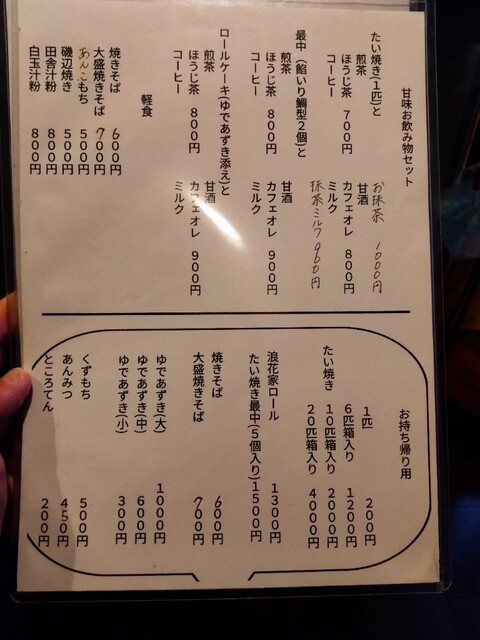 甘味お飲み物セット
たい焼き(1匹)と
煎茶
ほうじ茶 700円
コーヒー
お抹茶 1000円
甘酒
カフェオレ 800円
ミルク
抹茶ミルク 900円
最中(餡いり鯛型2個)と
煎茶
ほうじ茶 800円
コーヒー
甘酒
カフェオレ 900円
ミルク
ロールケーキ(ゆであずき添え)と
煎茶
ほうじ茶 800円
コーヒー
甘酒
カフェオレ 900円
ミルク
軽食
焼きそば 600円
大盛焼きそば 700円
あんこもち 500円
磯辺焼き 500円
田舎汁粉 800円
白玉汁粉 800円
お持ち帰り用
たい焼き
1匹 200円
6匹箱入り 1200円
10匹箱入り 2000円
20匹箱入り 4000円
浪花家ロール 1300円
たい焼き最中(5個入り) 1500円
焼きそば 600円
大盛焼きそば 700円
ゆであずき(大) 1000円
ゆであずき(中) 600円
ゆであずき(小) 300円
くずもち 500円
あんみつ 450円
ところてん 200円